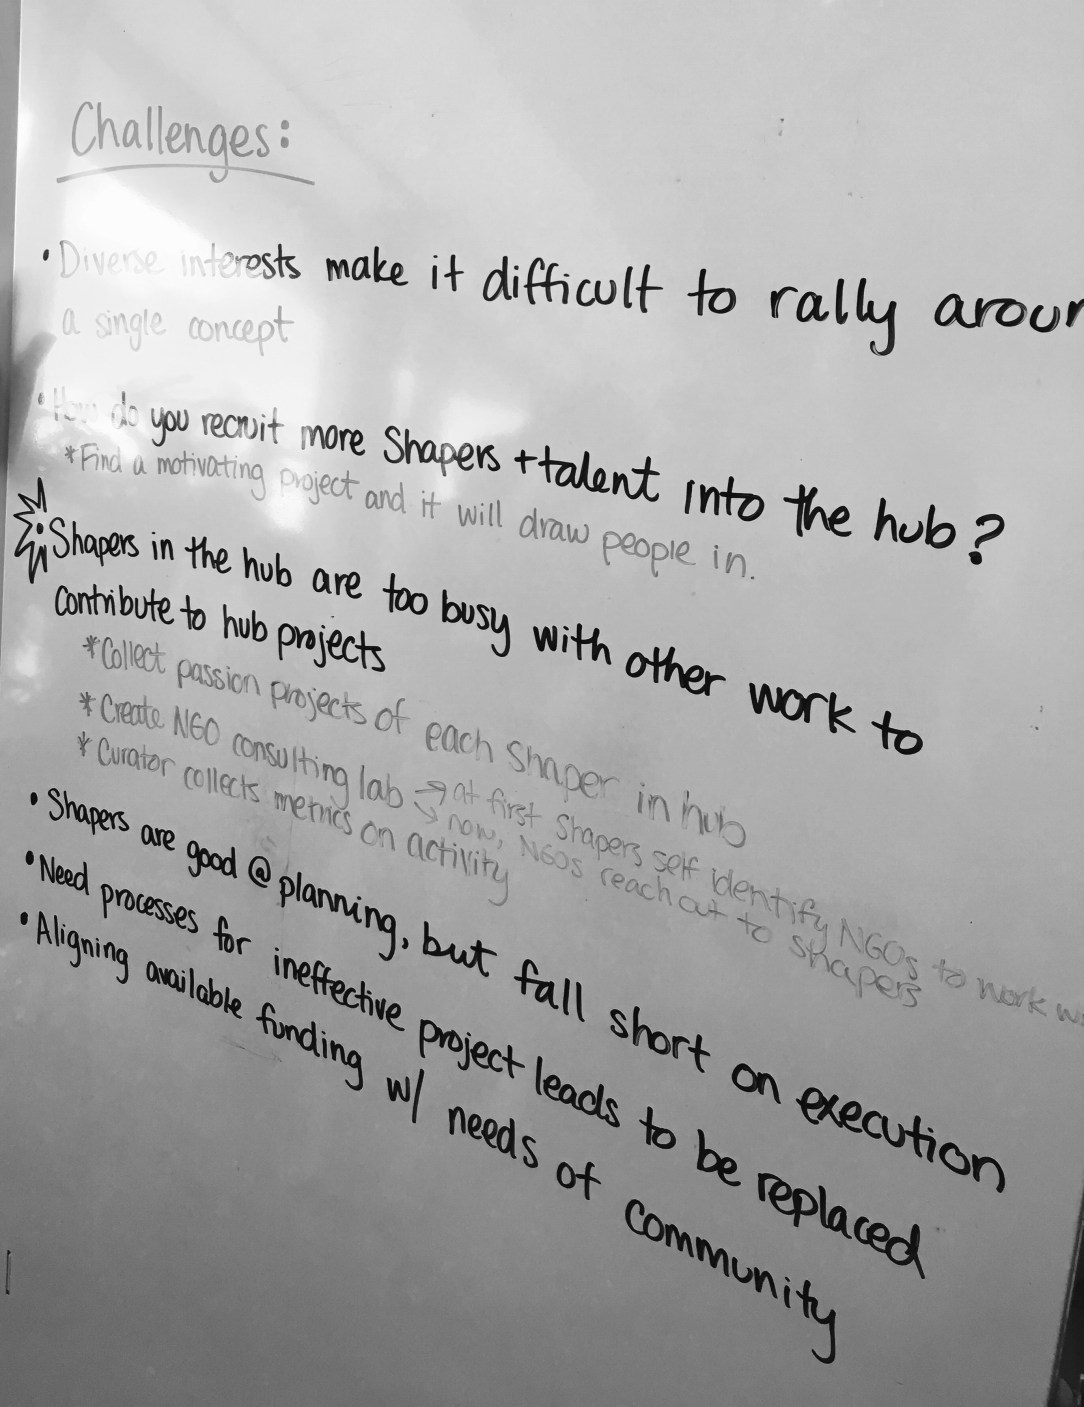 Challenges:
• Diverse interests make it difficult to rally aroun
a single concept
• How do you recruit more Shapers + talent into the hub?
* Find a motivating project and it will draw people in.
• Shapers in the hub are too busy with other work to
contribute to hub projects
* Collect passion projects of each Shaper in hub
* Create NGO consulting lab → at first Shapers self identify NGOs to work w
↘ now, NGOs reach out to shapers
* Curator collects metrics on activity
• Shapers are good @ planning, but fall short on execution
• Need processes for ineffective project leads to be replaced
• Aligning available funding w/ needs of community